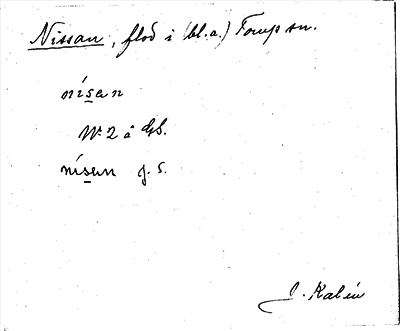 Nissan, flod i (bl.a.) Torup sn.
nísan
Nr 2 å
nísan g. s.
J. Kalén